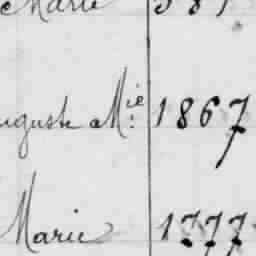 Marie 387
auguste Mie. 1867
Marie 1777